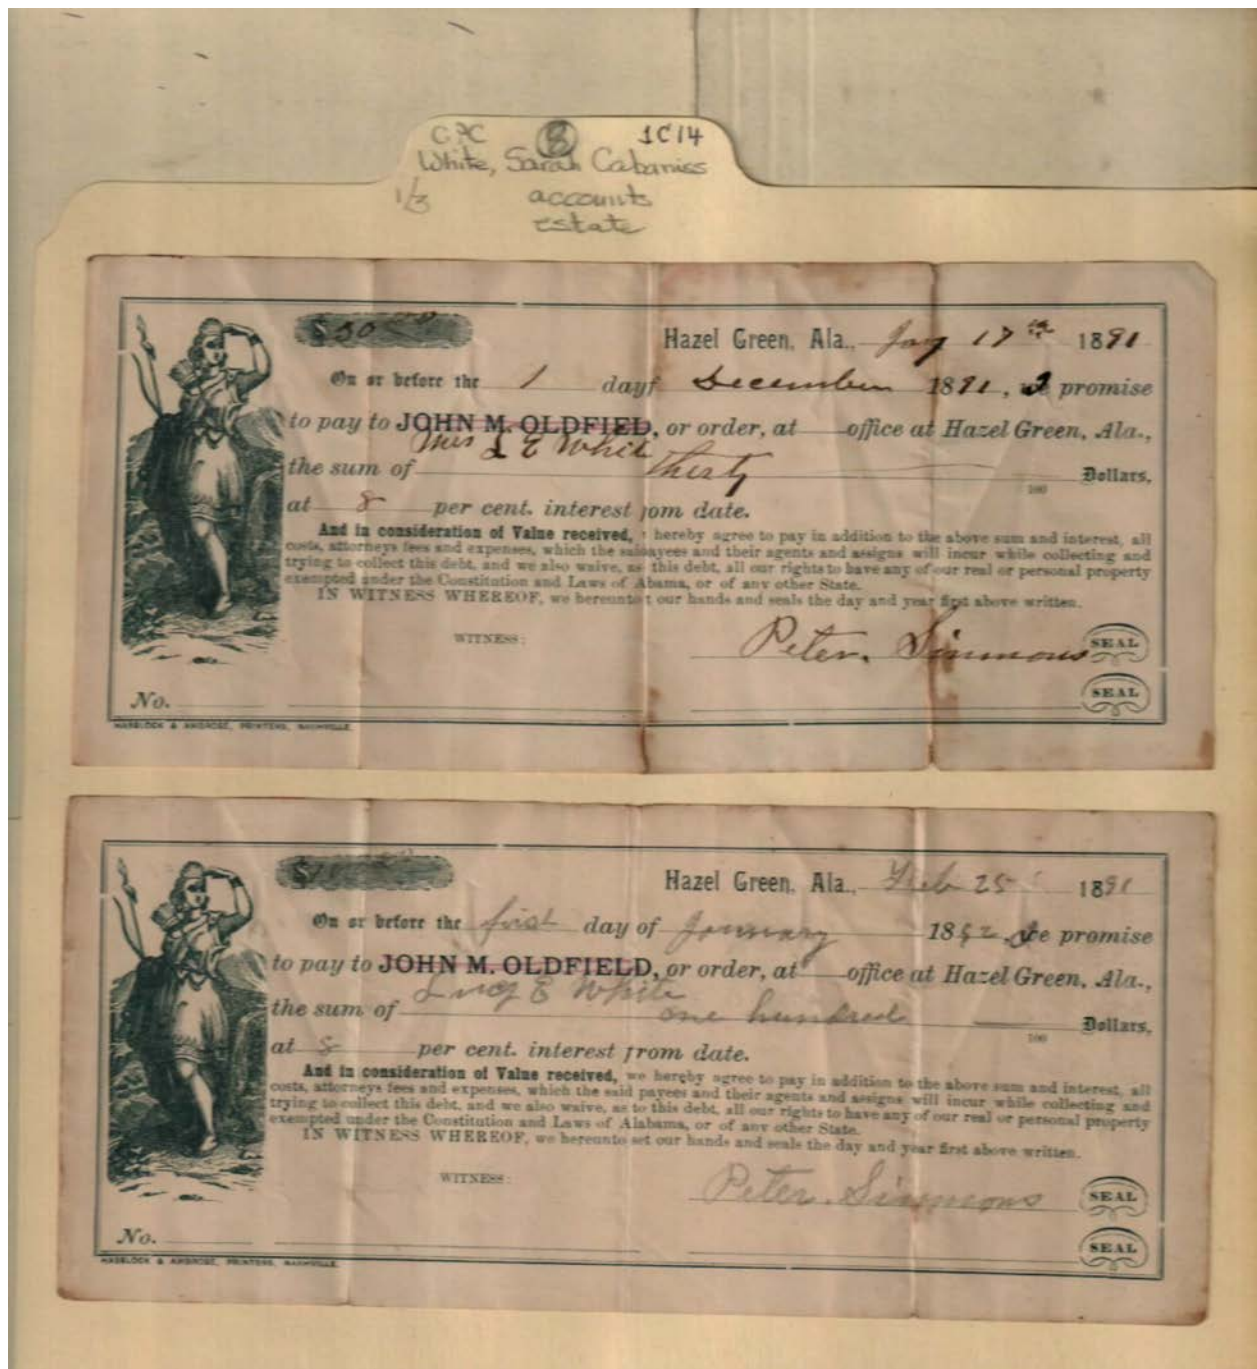 CPC 8 1C14
White, Sarah Cabaniss
1/3 accounts
estate
$30.00
Hazel Green, Ala., Jany 17th 1891
On or before the 1 day f December 1891, I promise
to pay to JOHN M. OLDFIELD, or order, at office at Hazel Green, Ala.,
Mrs L E White
the sum of thirty 100 Dollars,
at 8 per cent. interest from date.
And in consideration of Value received, hereby agree to pay in addition to the above sum and interest, all
costs, attorneys fees and expenses, which the said payees and their agents and assigns will incur while collecting and
trying to collect this debt, and we also waive, as this debt, all our rights to have any of our real or personal property
exempted under the Constitution and Laws of Abama, or of any other State.
IN WITNESS WHEREOF, we hereunto t our hands and seals the day and year first above written.
WITNESS: Peter. Simmons SEAL
No. SEAL
MARLOCK & AMBROSE, PRINTERS, NASHVILLE.
Hazel Green, Ala., Feb 25 1891
On or before the first day of January 1892 I promise
to pay to JOHN M. OLDFIELD, or order, at office at Hazel Green, Ala.,
Lucy E White
the sum of one hundred 100 Dollars,
at 8 per cent. interest from date.
And in consideration of Value received, we hereby agree to pay in addition to the above sum and interest, all
costs, attorneys fees and expenses, which the said payees and their agents and assigns will incur while collecting and
trying to collect this debt, and we also waive, as to this debt, all our rights to have any of our real or personal property
exempted under the Constitution and Laws of Alabama, or of any other State.
IN WITNESS WHEREOF, we hereunto set our hands and seals the day and year first above written.
WITNESS: Peter. Simmons SEAL
No. SEAL
MARLOCK & AMBROSE, PRINTERS, NASHVILLE.